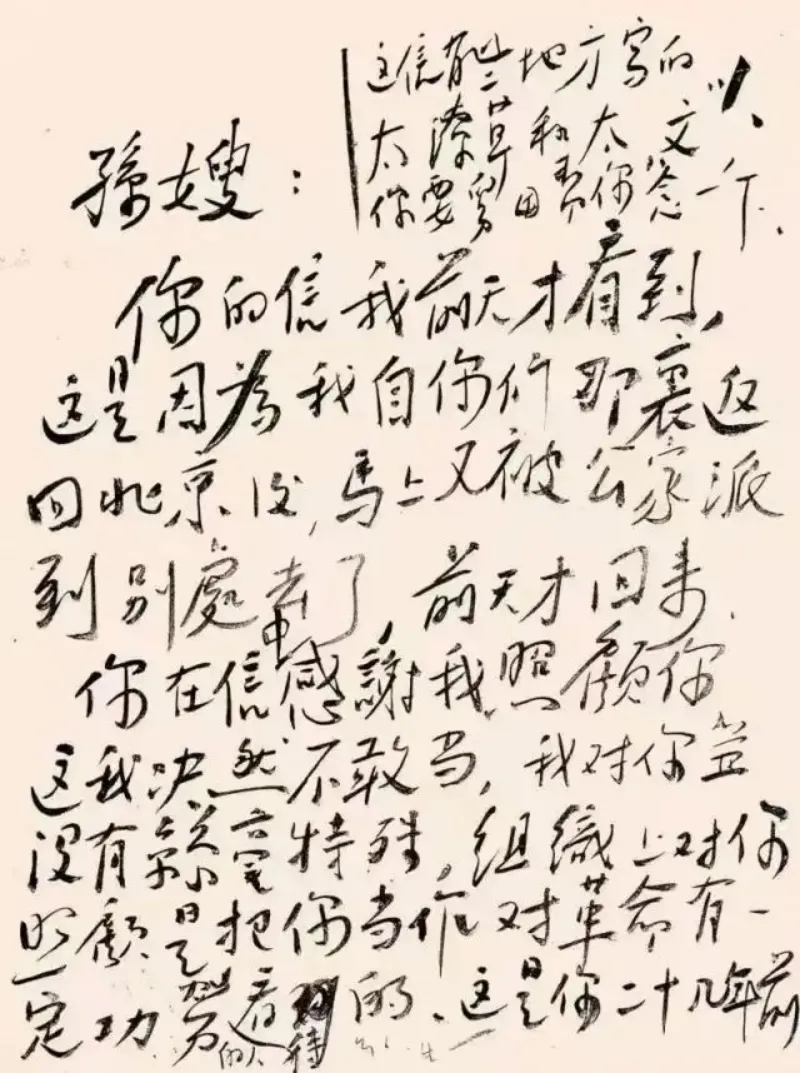 孫嫂：
这信有些地方写的
太潦草和太文
你要
你的信我前天才看到，
这是因為我自你们那裏返
回北京后，馬上又被公家派
到别處去了，前天才回来。
你在信中感謝我照顧你
这我决然不敢当，我对你並
没有絲毫特殊，組織上对你
照顧是把你当作对革命有一
定功劳的人看待的。这是你二十几年前